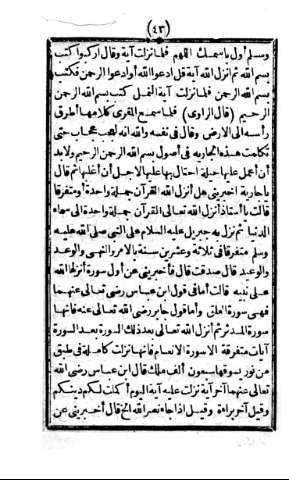 (٤٣)
وسلم أول باسمك اللهم فلما نزلت آية وقال اركبوا كتب
بسم الله ثم نزل الله آية قل ادعوا الله أو ادعوا الرحمن فكتب
بسم الله الرحمن فلما نزلت آية النمل كتب بسم الله الرحمن
الرحيم (قال الراوى) فلما سمع المقرى كلامها أطرق
رأسه الى الارض وقال فى نفسه والله انه لعجب عجاب حتى
تكلمت هذه الجارية فى أصول بسم الله الرحمن الرحيم ولابد
أن أعمل عليها حيلة احتال بها عليها لاجل أن أغلبها ثم قال
ياجارية اخبرينى هل أنزل الله القرآن جملة واحدة أو متفرقا
قالت ياأستاذ أنزل الله تعالى القرآن جملة واحدة الى سماء
الدنيا ثم نزل به جبريل عليه السلام على النبى صلى الله عليه
وسلم متفرقا فى ثلاثة وعشرين سنة بالامر والنهى والوعد
والوعيد قال صدقت قال فأخبرينى عن أول سورة أنزلها الله
على نبيه قالت أما فى قول ابن عباس رضى تعالى عنهما
فهى سورة العلق وأما قول جابر رضى الله تعالى عنه فانها
سورة المدثر ثم أنزل الله تعالى بعد ذلك السورة بعد السورة
آيات متفرقة الا سورة الانعام فانها نزلت كاملة فى طبق
من نور يسوقها سبعون ألف ملك قال ابن عباس رضى الله
تعالى عنهما آخر آية نزلت عليه آية اليوم أكملت لكم دينكم
وقيل آخر براءة وقيل اذا جاء نصر الله الخ قال أخبرينى عن